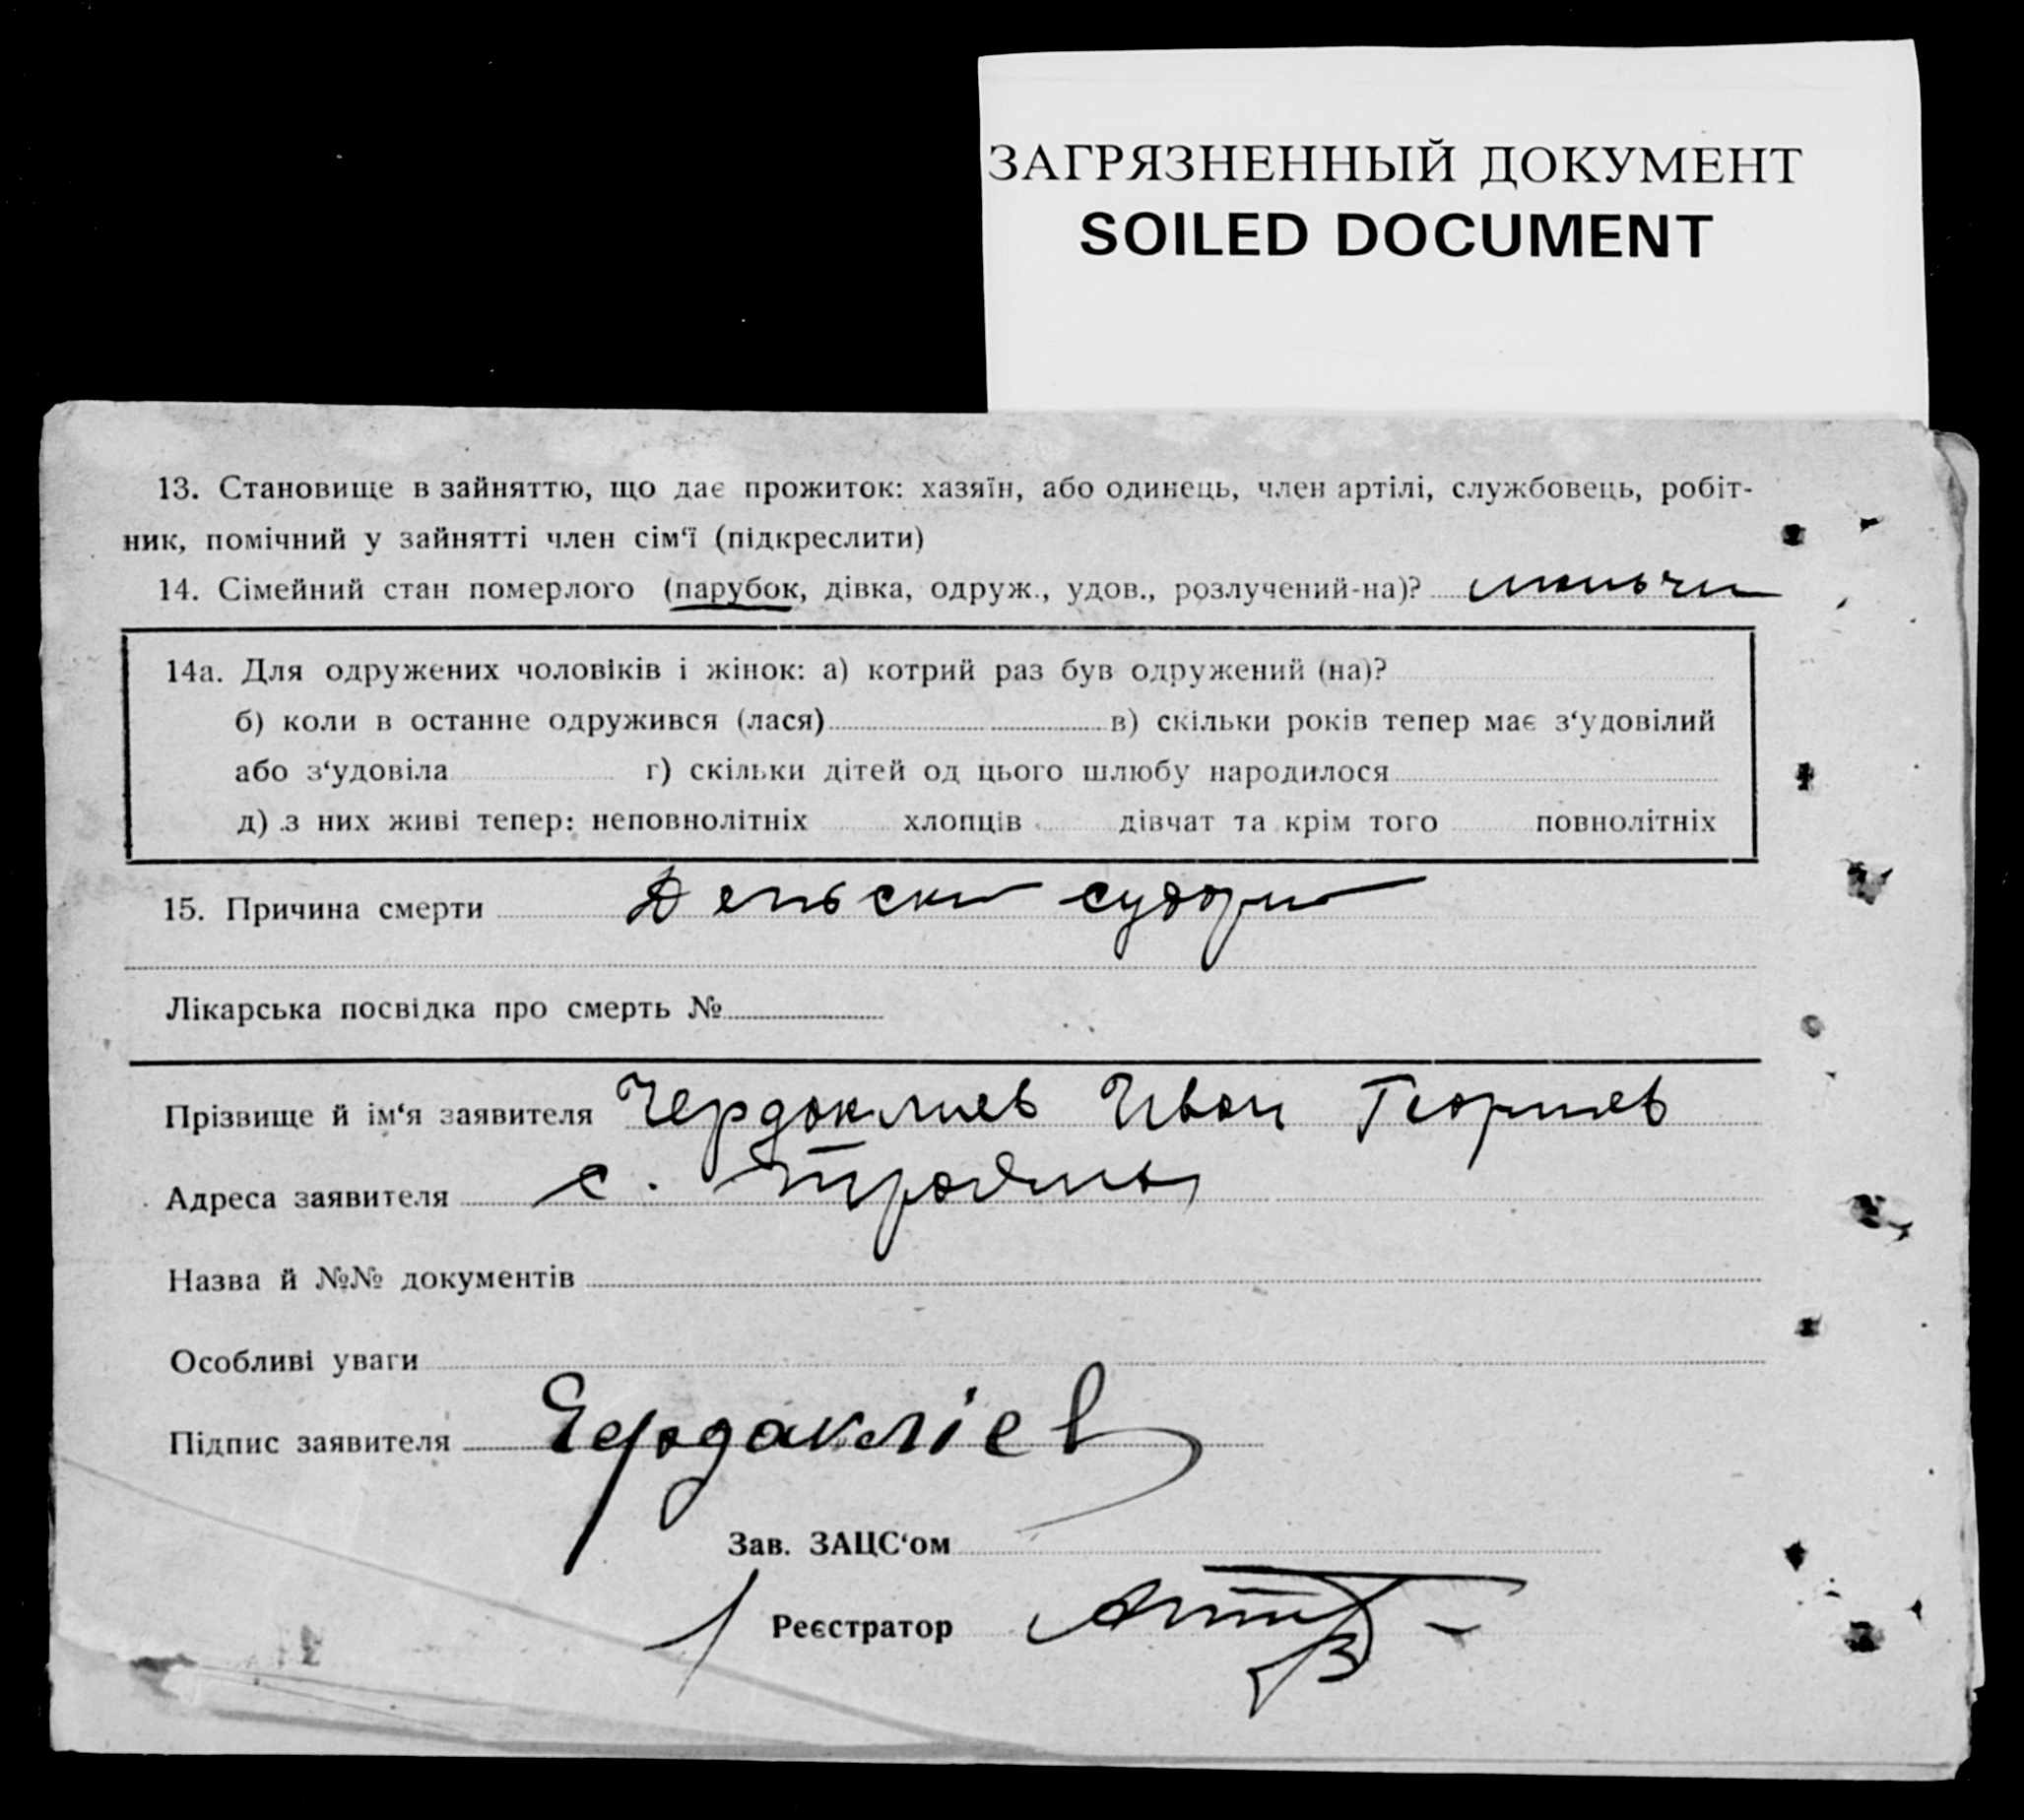 ЗАГРЯЗНЕННЫЙ ДОКУМЕНТ
SOILED DOCUMENT
13. Становище в зайняттю, що дає прожиток: хазяїн, або одинець, член артілі, службовець, робіт-
ник, помічний у зайнятті член сім‘ї (підкреслити)
14. Сімейний стан померлого (парубок, дівка, одруж., удов., розлучений-на)?
14а. Для одружених чоловіків і жінок: а) котрий раз був одружений (на)?
б) коли в останнє одружився (лася) в) скільки років тепер має з‘удовілий
або з‘удовіла г) скільки дітей од цього шлюбу народилося
д) з них живі тепер: неповнолітніх хлопців дівчат та крім того повнолітніх
15. Причина смерти
Лікарська посвідка про смерть №
Прізвище й ім‘я заявителя Чердаклиев Иван Георгиев
Адреса заявителя с. Трояны
Назва й №№ документів
Особливі уваги
Підпис заявителя Чердакліев
Зав. ЗАЦС‘ом
Реєстратор